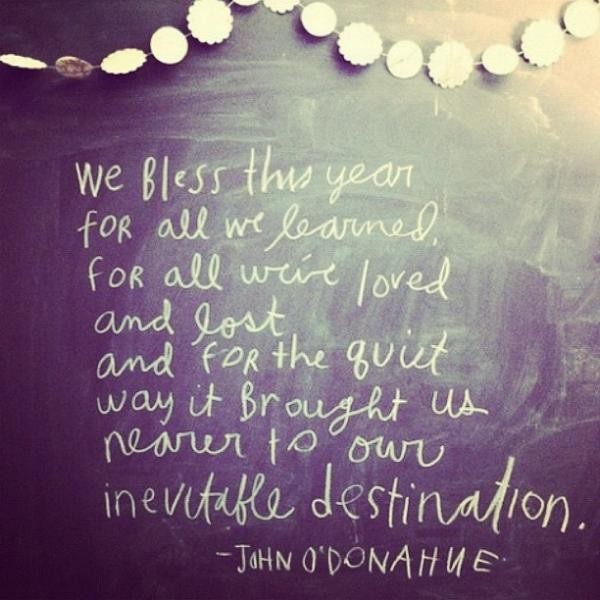 We Bless this year
for all we learned,
for all we've loved
and lost
and for the quiet
way it Brought us
nearer to our
inevitable destination.
-JOHN O'DONAHUE